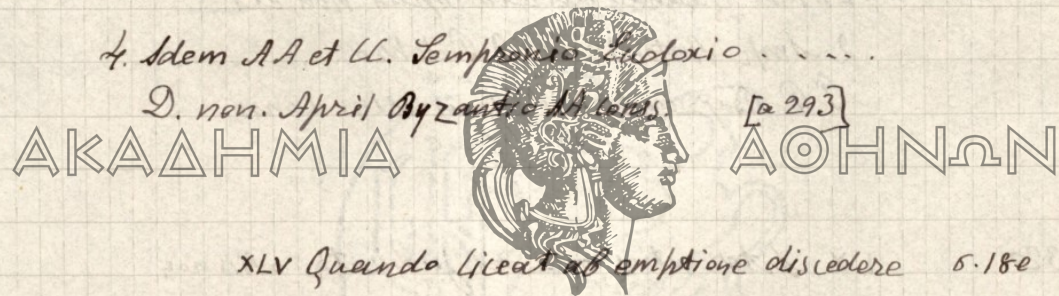 4. Idem AA et CC. Sempronio Eudoxio . . . . .
D. non. April Byzantio AA conss [a 293]
ΑΚΑΔΗΜΙΑ ΑΘΗΝΩΝ
XLV Quando liceat ab emptione discedere σ.180